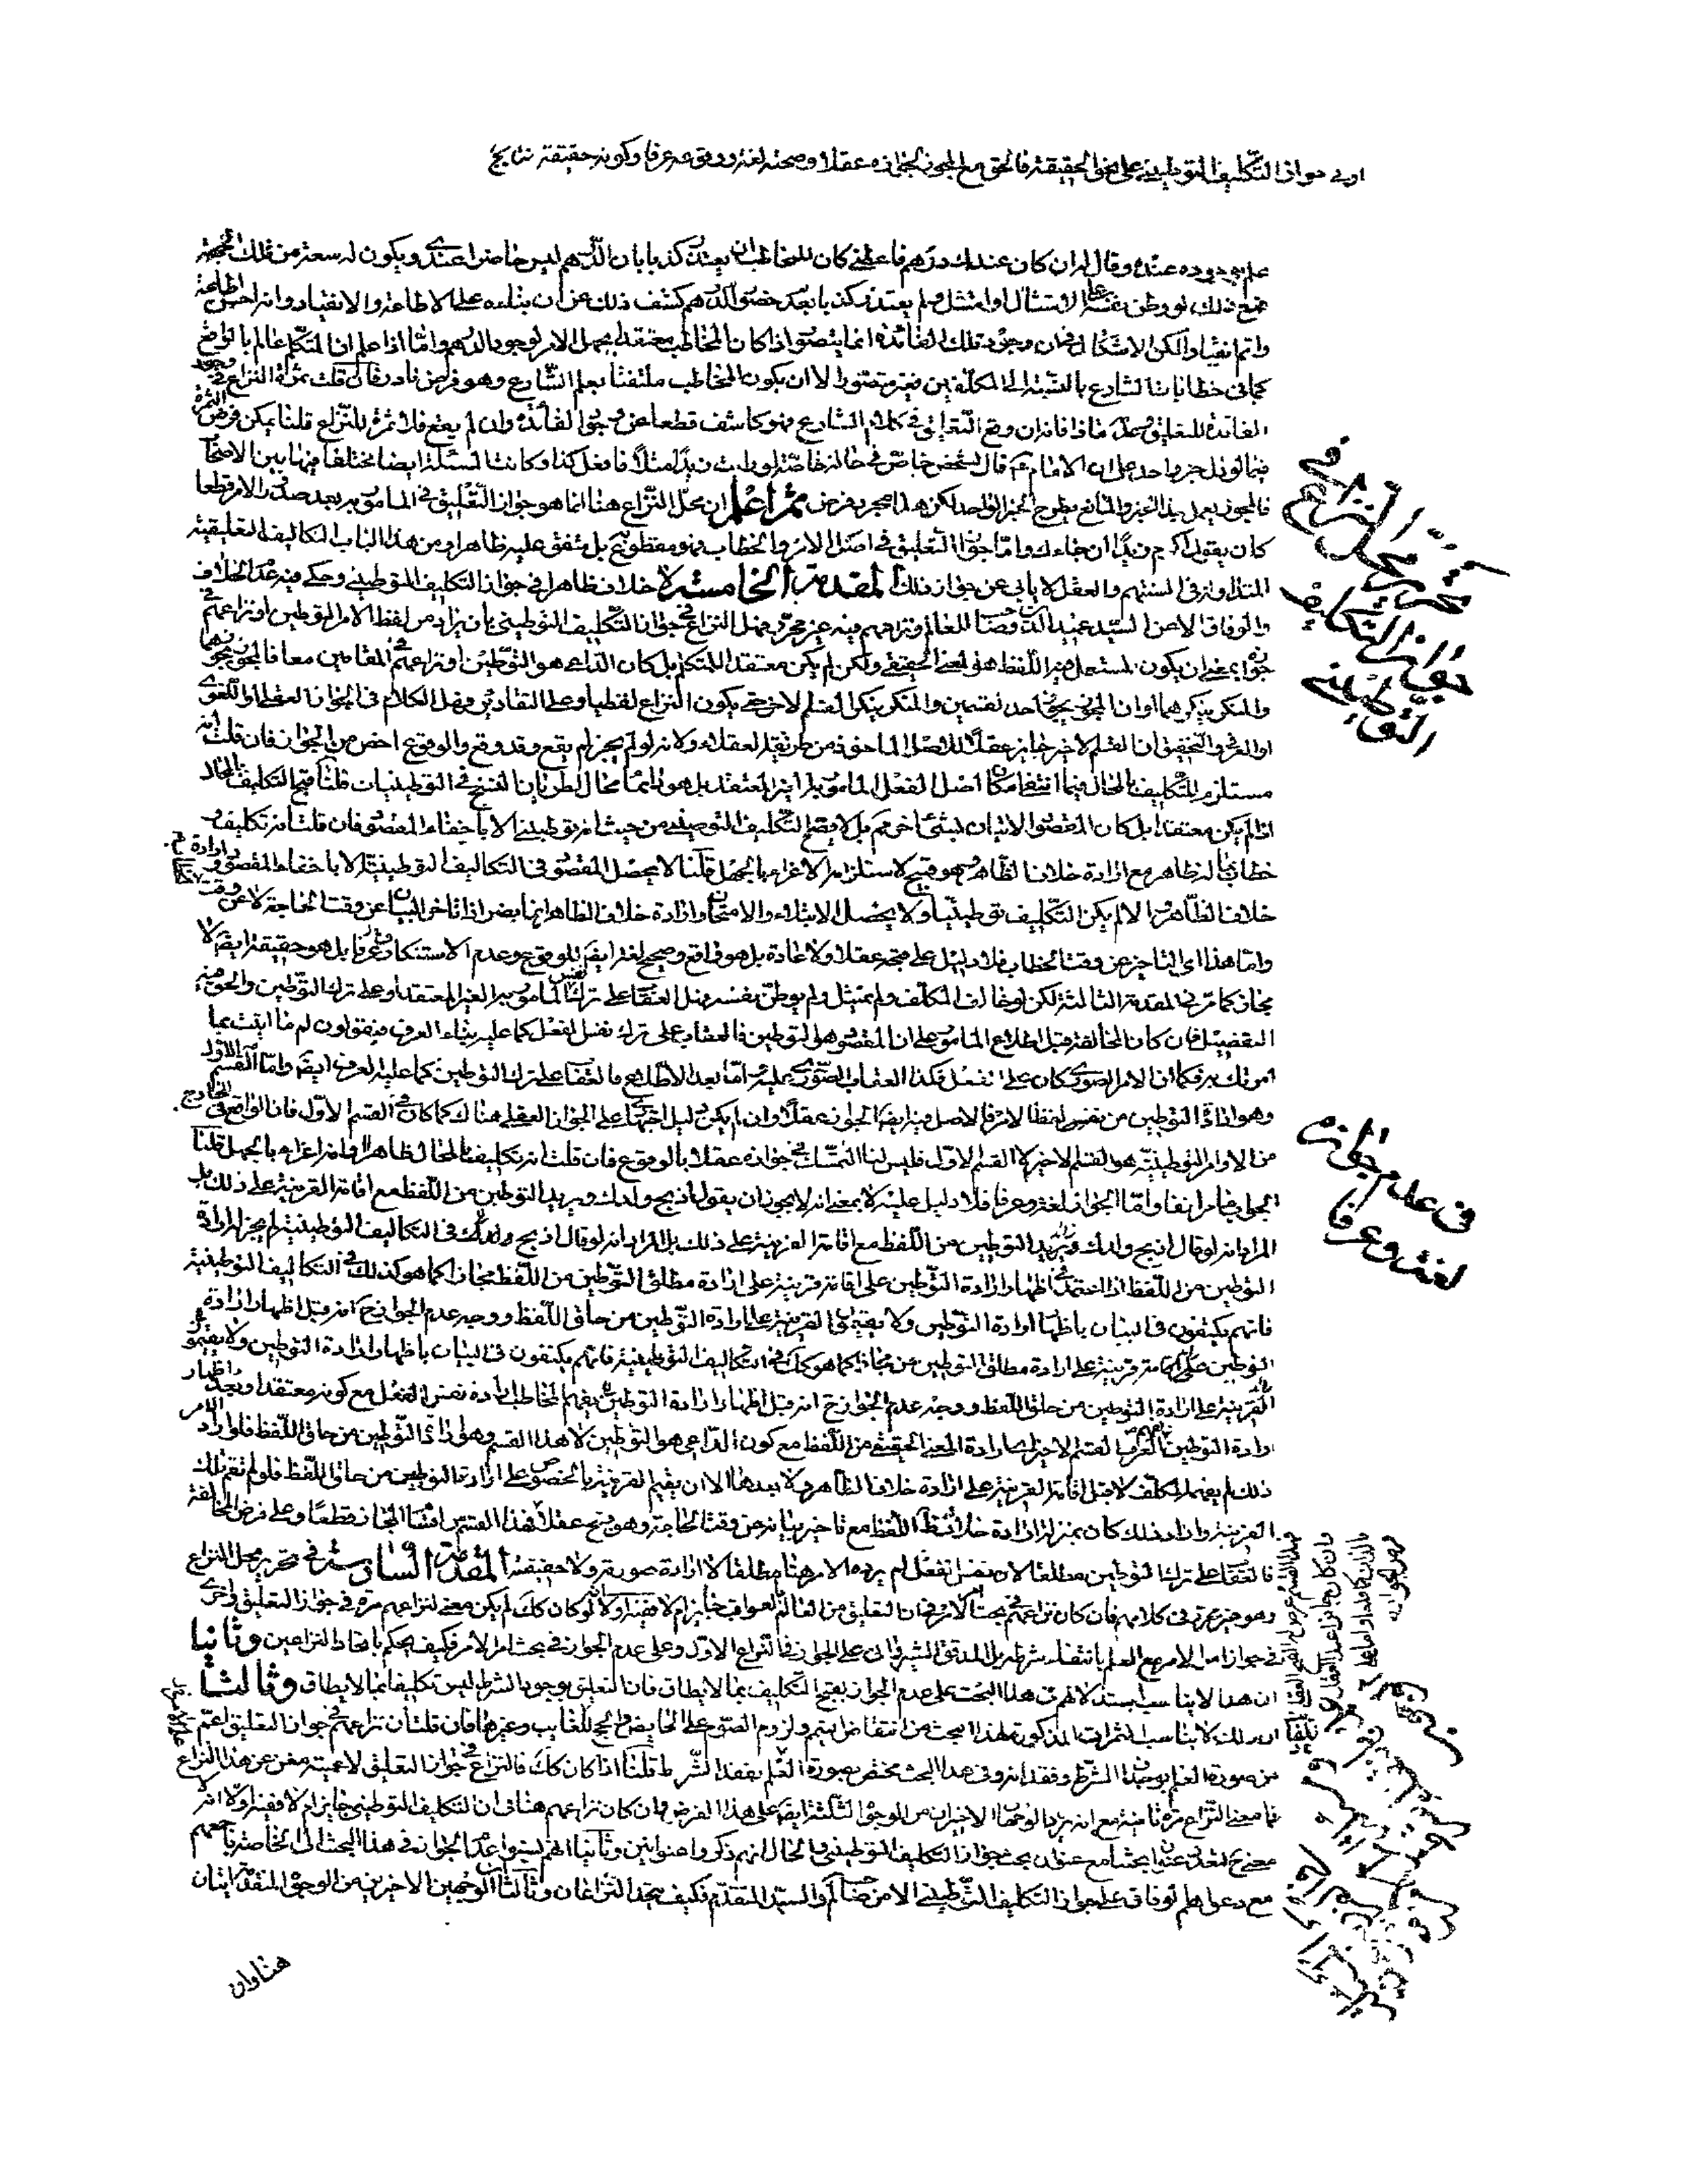 او في جواز التكليف التوطيني على نحو الحقيقة فالحق مع المجوز لجوازه عقلا وصحته لغة ووقوعه عرفا وكونه حقيقة
علم بوجوده عنده وقال له ان كان عندك درهم فاعطني كان للمخاطب ان يعتذر كذبا بان الدرهم ليس حاضرا عندي ويكون له سعة من تلك الجهة
فمع ذلك لو وطن نفسه على الامتثال او امتثل ولم يعتذر كذبا بعدم حضور الدرهم كشف ذلك عن ان بناءه على الاطاعة والانقياد وانه احسن اطاعة
واتم انقيادا لكن الاشكال في ان وجود تلك الفائدة انما يتصور اذا كان المخاطب معتقدا بجهل الامر لوجود الدرهم واما اذا علم ان المتكلم عالم بالواقع
كما في خطابات الشارع بالنسبة الى المكلفين فغير متصور الا ان يكون المخاطب ملتفتا بعلم الشارع وهو فرض نادر فان قلت ثمرة النزاع في وجود
الفائدة للتعليق وعدمها ذا فانه ان وقع التعليق في كلام الشارع فهو كاشف قطعا عن وجود الفائدة وان لم يقع فلا ثمرة للنزاع قلنا يمكن فرض الثمرة
فيما لو دل خبر واحد على ان الامام ع قال لشخص خاص في حالة خاصة لو رايت زيدا مثلا فافعل كذا وكانت المسئلة ايضا مختلفا فيها بين الاصحاب
فالمجوز يعمل بهذا الخبر والمانع يطرح الخبر الواحد لكن هذا مجرد فرض ثم اعلم ان محل النزاع هنا انما هو جواز التعليق في المامور به بعد صدور الامر قطعا
كان يقول اكرم زيدا ان جاءك واما جواز التعليق في اصل الامر والخطاب فهو مقطوع به بل متفق عليه ظاهرا ومن هذا الباب التكاليف التعليقية
المتداولة في السنتهم والعقل لا يابى عن جواز ذلك المقدمة الخامسة لا خلاف ظاهرا في جواز التكليف التوطيني وحكي فيه عدم الخلاف
والوفاق الا عن السيد عميد الدين وصاحب المعالم ونزاعهم فيه غير محرر فهل النزاع في جواز التكليف التوطيني بان يراد من لفظ الامر التوطين او نزاعهم في
جوازه بمعنى ان يكون المستعمل فيه اللفظ هو المعنى الحقيقي ولكن لم يكن معتقدا للمتكلم بل كان الداعي هو التوطين او نزاعهم في المقامين معا فالمجوز يجوزهما
والمنكر ينكرهما او ان المجوز يجوز احد القسمين والمنكر ينكر القسم الاخر حتى يكون النزاع لفظيا وعلى التقادير فهل الكلام في الجواز العقلي او اللغوي
او العرفي والتحقيق ان القسم الاخير جائز عقلا للاصل الماخوذ من طريقة العقلاء ولانه لو لم يجز لم يقع وقد وقع والوقوع اخص من الجواز فان قلت انه
مستلزم للتكليف بالمحال فيما انتفى امكان اصل الفعل المامور به الغير المعتقد بل هو دائما محال لطريان النسخ في التوطينيات قلنا قبح التكليف بالمحال
اذا لم يكن معتقدا بل كان المقصود الاتيان بشيء اخر مم بل لا يصح التكليف التوطيني من حيث انه توطيني الا باخفاء المقصود فان قلت انه تكليف و
خطاب بما له ظاهر مع ارادة خلاف الظاهر وهو قبيح لاستلزامه الاغراء بالجهل قلنا لا يحصل المقصود في التكاليف التوطينية الا باخفاء المقصود وارادة
خلاف الظاهر والا لم يكن التكليف توطينيا ولا يحصل الابتلاء والامتحان وارادة خلاف الظاهر انما يضر اذا تاخر البيان عن وقت الحاجة لا عن وقت
واما هذا اي التاخير عن وقت الخطاب فلا دليل على قبحه عقلا ولا عادة بل هو واقع وصحيح لغة ايضا للوقوع وعدم الاستنكار وعرفا بل هو حقيقة ايضا لا
مجاز كما مر في المقدمة الثالثة لكن لو خالف المكلف ولم يمتثل ولم يوطن نفسه فهل العقاب على ترك نفس المامور به الغير المعتقد او على ترك التوطين والحق فيه
التفصيل فان كان المخالفة قبل اطلاع المامور على ان المقصود هو التوطين فالعقاب على ترك نفس الفعل كما عليه بناء العرف فيقولون لم ما اتيت بما
امرتك به فكما ان الامر الصوري كان على الفعل فكذا العقاب الصوري عليه واما بعد الاطلاع فالعقاب على ترك التوطين كما عليه العرف ايضا واما القسم الاول
وهو ارادة التوطين من نفس لفظ الامر فالاصل فيه ايضا الجواز عقلا وان لم يكن دليل اجتهادي على الجواز العقلي هناك كما كان في القسم الاول فان الواقع في الخارج
من الاوامر التوطينية هو القسم الاخير لا القسم الاول فليس لنا التمسك في جوازه عقلا بالوقوع فان قلت انه تكليف بالمحال ظاهرا وانه اغراء بالجهل قلنا
الجواب ما مر انفا واما الجواز لغة وعرفا فلا دليل عليه لا بمعنى انه لا يجوز ان يقول اذبح ولدك ويريد التوطين من اللفظ مع اقامة القرينة على ذلك بل
المراد انه لو قال اذبح ولدك ويريد التوطين من اللفظ مع اقامة القرينة على ذلك بل المراد انه لو قال اذبح ولدك في التكاليف التوطينية لم يجز له ارادة
التوطين من اللفظ اذا اعتمد في اظهار ارادة التوطين على اقامة قرينة على ارادة مطلق التوطين من اللفظ مجازا كما هو كذلك في التكاليف التوطينية
فانهم يكتفون في البيان باظهار ارادة التوطين ولا يقيمون القرينة على ارادة التوطين من حاق اللفظ ووجه عدم الجواز ح انه قبل اظهار ارادة
التوطين على اقامة قرينة على ارادة مطلق التوطين من مجازا كما هو كك في التكاليف التوطينية فانهم يكتفون في البيان باظهار ارادة التوطين ولا يقيمون
القرينة على ارادة التوطين من حاق اللفظ ووجه عدم الجواز ح انه قبل اظهار ارادة التوطين يفهم المخاطب ارادة نفس الفعل مع كونه معتقدا وبعد اظهار
ارادة التوطين يفهم العرف القسم الاخير اي ارادة المعنى الحقيقي من اللفظ مع كون الداعي هو التوطين لا هذا القسم وهو ارادة التوطين من حاق اللفظ فلو اراد الامر
ذلك لم يفهمه المكلف لا قبل اقامة القرينة على ارادة خلاف الظاهر ولا بعدها الا ان يقيم القرينة بالخصوص على ارادة التوطين من حاق اللفظ فلو لم تقم تلك
القرينة واراد ذلك كان بمنزلة ارادة خلاف ظاهر اللفظ مع تاخير بيانه عن وقت الحاجة وهو قبيح عقلا فهذا القسم من اقسام المجاز قطعا وعلى فرض المخالفة
فالعقاب على ترك التوطين مطلقا لان نفس الفعل لم يرده الامر هنا مطلقا لا ارادة صورية ولا حقيقة المقدمة السادسة في تحرير محل النزاع
وهو غير محرر في كلامهم فان كان نزاعهم في مبحث الامر في ان التعليق من العالم بالعواقب جايز ام لا ففيه اولا انه لو كان كك لم يكن معنى لنزاعهم مرة في جواز التعليق واخرى
في جواز امر الامر مع العلم بانتفاء شرطه بل المدقق الشيرواني على الجواز في النزاع الاول وعلى عدم الجواز في مبحث امر الامر فكيف يحكم باتحاد النزاعين وثانيا
ان هذا لا يناسب استدلالهم في هذا المبحث على عدم الجواز بقبح التكليف بما لا يطاق فان التعليق بوجود الشرط ليس تكليفا بما لا يطاق وثالثا
ان ذلك لا يناسب الثمرات المذكورة لهذا المبحث من انتقاض التيمم ولزوم الصوم على الحايض والحج للغايب وغيرها فان قلت ان نزاعهم في جواز التعليق اعم
من صورة العلم بوجود الشرط وفقدانه وفي هذا المبحث مختص بصورة العلم بفقد الشرط قلنا اذا كان كك فالنزاع في جواز التعليق لاعميته مغن عن هذا النزاع
فما معنى النزاع مرة ثانية مع انه يرد الوجهان الاخيران من الوجوه الثلثة ايضا على هذا الفرض وان كان نزاعهم هنا في ان التكليف التوطيني جايز ام لا ففيه اولا انه لا
معنى لتعدد عنوان المبحث مع عنوان مبحث جواز التكليف التوطيني والحال انهم ذكروا عنوانين وثانيا انهم نسبوا عدم الجواز في هذا المبحث الى الخاصة باجمعهم
مع دعواهم الوفاق على جواز التكليف التوطيني الا من صاحب لم والسيد المتقدم فكيف يتحد النزاعان وثالثا ان الوجهين الاخيرين من الوجوه المتقدمة اتيان
هنا وان
في تحرير محل النزاع في جواز التكليف التوطيني
في عدم جوازه لغة وعرفا